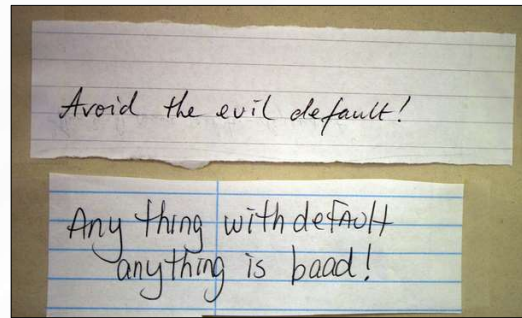 Avoid the evil default!
Any thing with default
anything is baad!